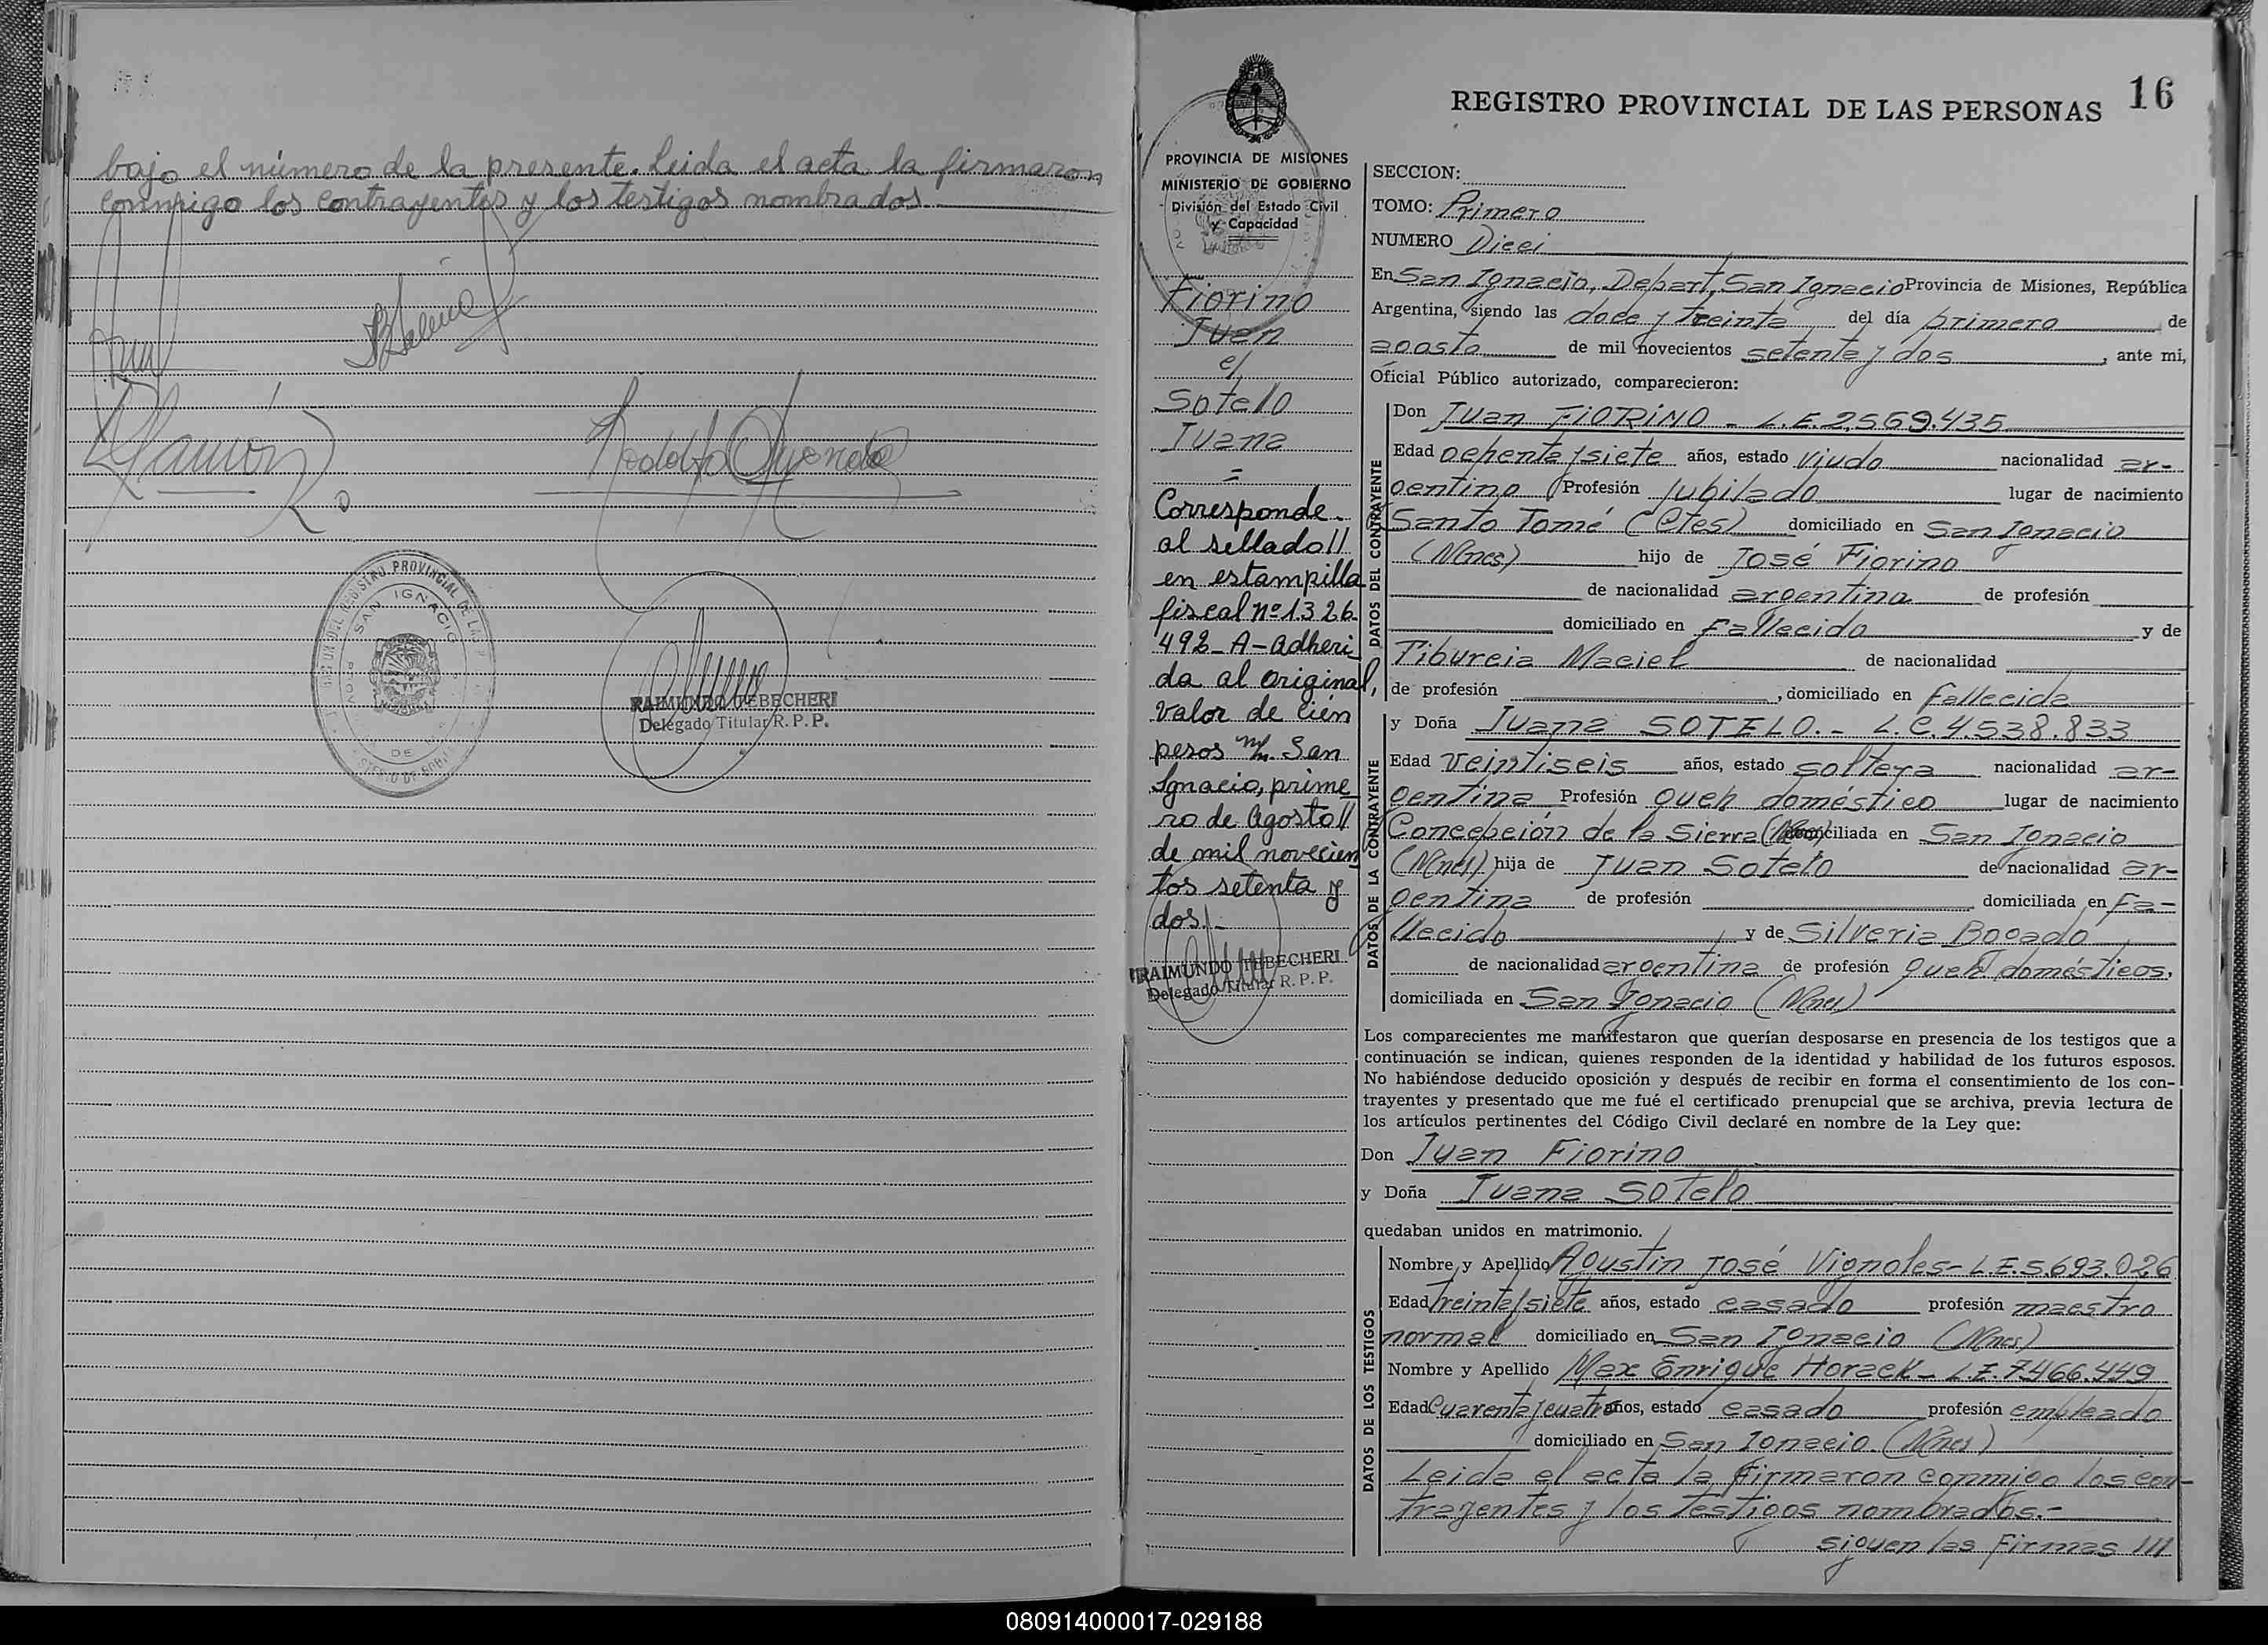 bajo el número de la presente. Leida el acta la firmaron
conmigo los contrayentes y los testigos nombrados.
Ramón
Rodolfo
SAN IGNACIO
RAIMUNDO TEBECHERI
Delegado Titular R. P. P.
REGISTRO PROVINCIAL DE LAS PERSONAS 16
PROVINCIA DE MISIONES
MINISTERIO DE GOBIERNO
División del Estado Civil
y Capacidad
Fiorino
Juan
c/
Sotelo
Juana
=
Corresponde
al sellado//
en estampilla
fiscal nº 1326
492-A-adheri
da al original,
valor de cien
pesos m/n. San
Ignacio, prime
ro de Agosto//
de mil novecien
tos setenta y
dos.-
RAIMUNDO TEBECHERI
Delegado Titular R. P. P.
SECCION:
TOMO: Primero
NUMERO Dieci
En San Ignacio, Depart. San Ignacio Provincia de Misiones, República
Argentina, siendo las doce y treinta del día primero de
agosto de mil novecientos setenta y dos, ante mi,
Oficial Público autorizado, comparecieron:
DATOS DEL CONTRAYENTE
Don Juan FIORINO - L.E. 2.569.435
Edad ochenta y siete años, estado viudo nacionalidad ar-
gentino Profesión Jubilado lugar de nacimiento
Santo Tomé (Ctes) domiciliado en San Ignacio
(Mnes) hijo de José Fiorino
de nacionalidad argentina de profesión
domiciliado en Fallecido y de
Tiburcia Maciel de nacionalidad
de profesión , domiciliado en Fallecida
DATOS DE LA CONTRAYENTE
y Doña Juana SOTELO.- L.C. 4.538.833
Edad veintiseis años, estado soltera nacionalidad ar-
gentina Profesión queh doméstico lugar de nacimiento
Concepción de la Sierra (Mnes) domiciliada en San Ignacio
(Mnes) hija de Juan Sotelo de nacionalidad ar-
gentina de profesión domiciliada en Fa-
llecido y de Silveria Bogado
de nacionalidad argentina de profesión queh domésticos,
domiciliada en San Ignacio (Mnes)
Los comparecientes me manifestaron que querían desposarse en presencia de los testigos que a
continuación se indican, quienes responden de la identidad y habilidad de los futuros esposos.
No habiéndose deducido oposición y después de recibir en forma el consentimiento de los con-
trayentes y presentado que me fué el certificado prenupcial que se archiva, previa lectura de
los artículos pertinentes del Código Civil declaré en nombre de la Ley que:
Don Juan Fiorino
y Doña Juana Sotelo
quedaban unidos en matrimonio.
DATOS DE LOS TESTIGOS
Nombre y Apellido Agustin José Vignoles - L.E. 5.693.026
Edad treinta y siete años, estado casado profesión maestro
normal domiciliado en San Ignacio (Mnes)
Nombre y Apellido Max Enrique Horack - L.E. 7.466.449
Edad Cuarenta y cuatro años, estado casado profesión empleado
domiciliado en San Ignacio (Mnes)
Leida el acta la firmaron conmigo los con-
trayentes y los testigos nombrados.-
siguen las firmas ///
080914000017-029188